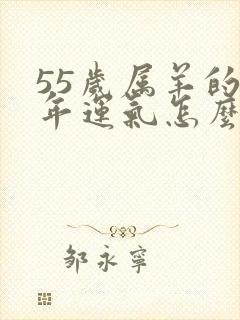 55歲属羊的
年運氣怎麼
邹永寧